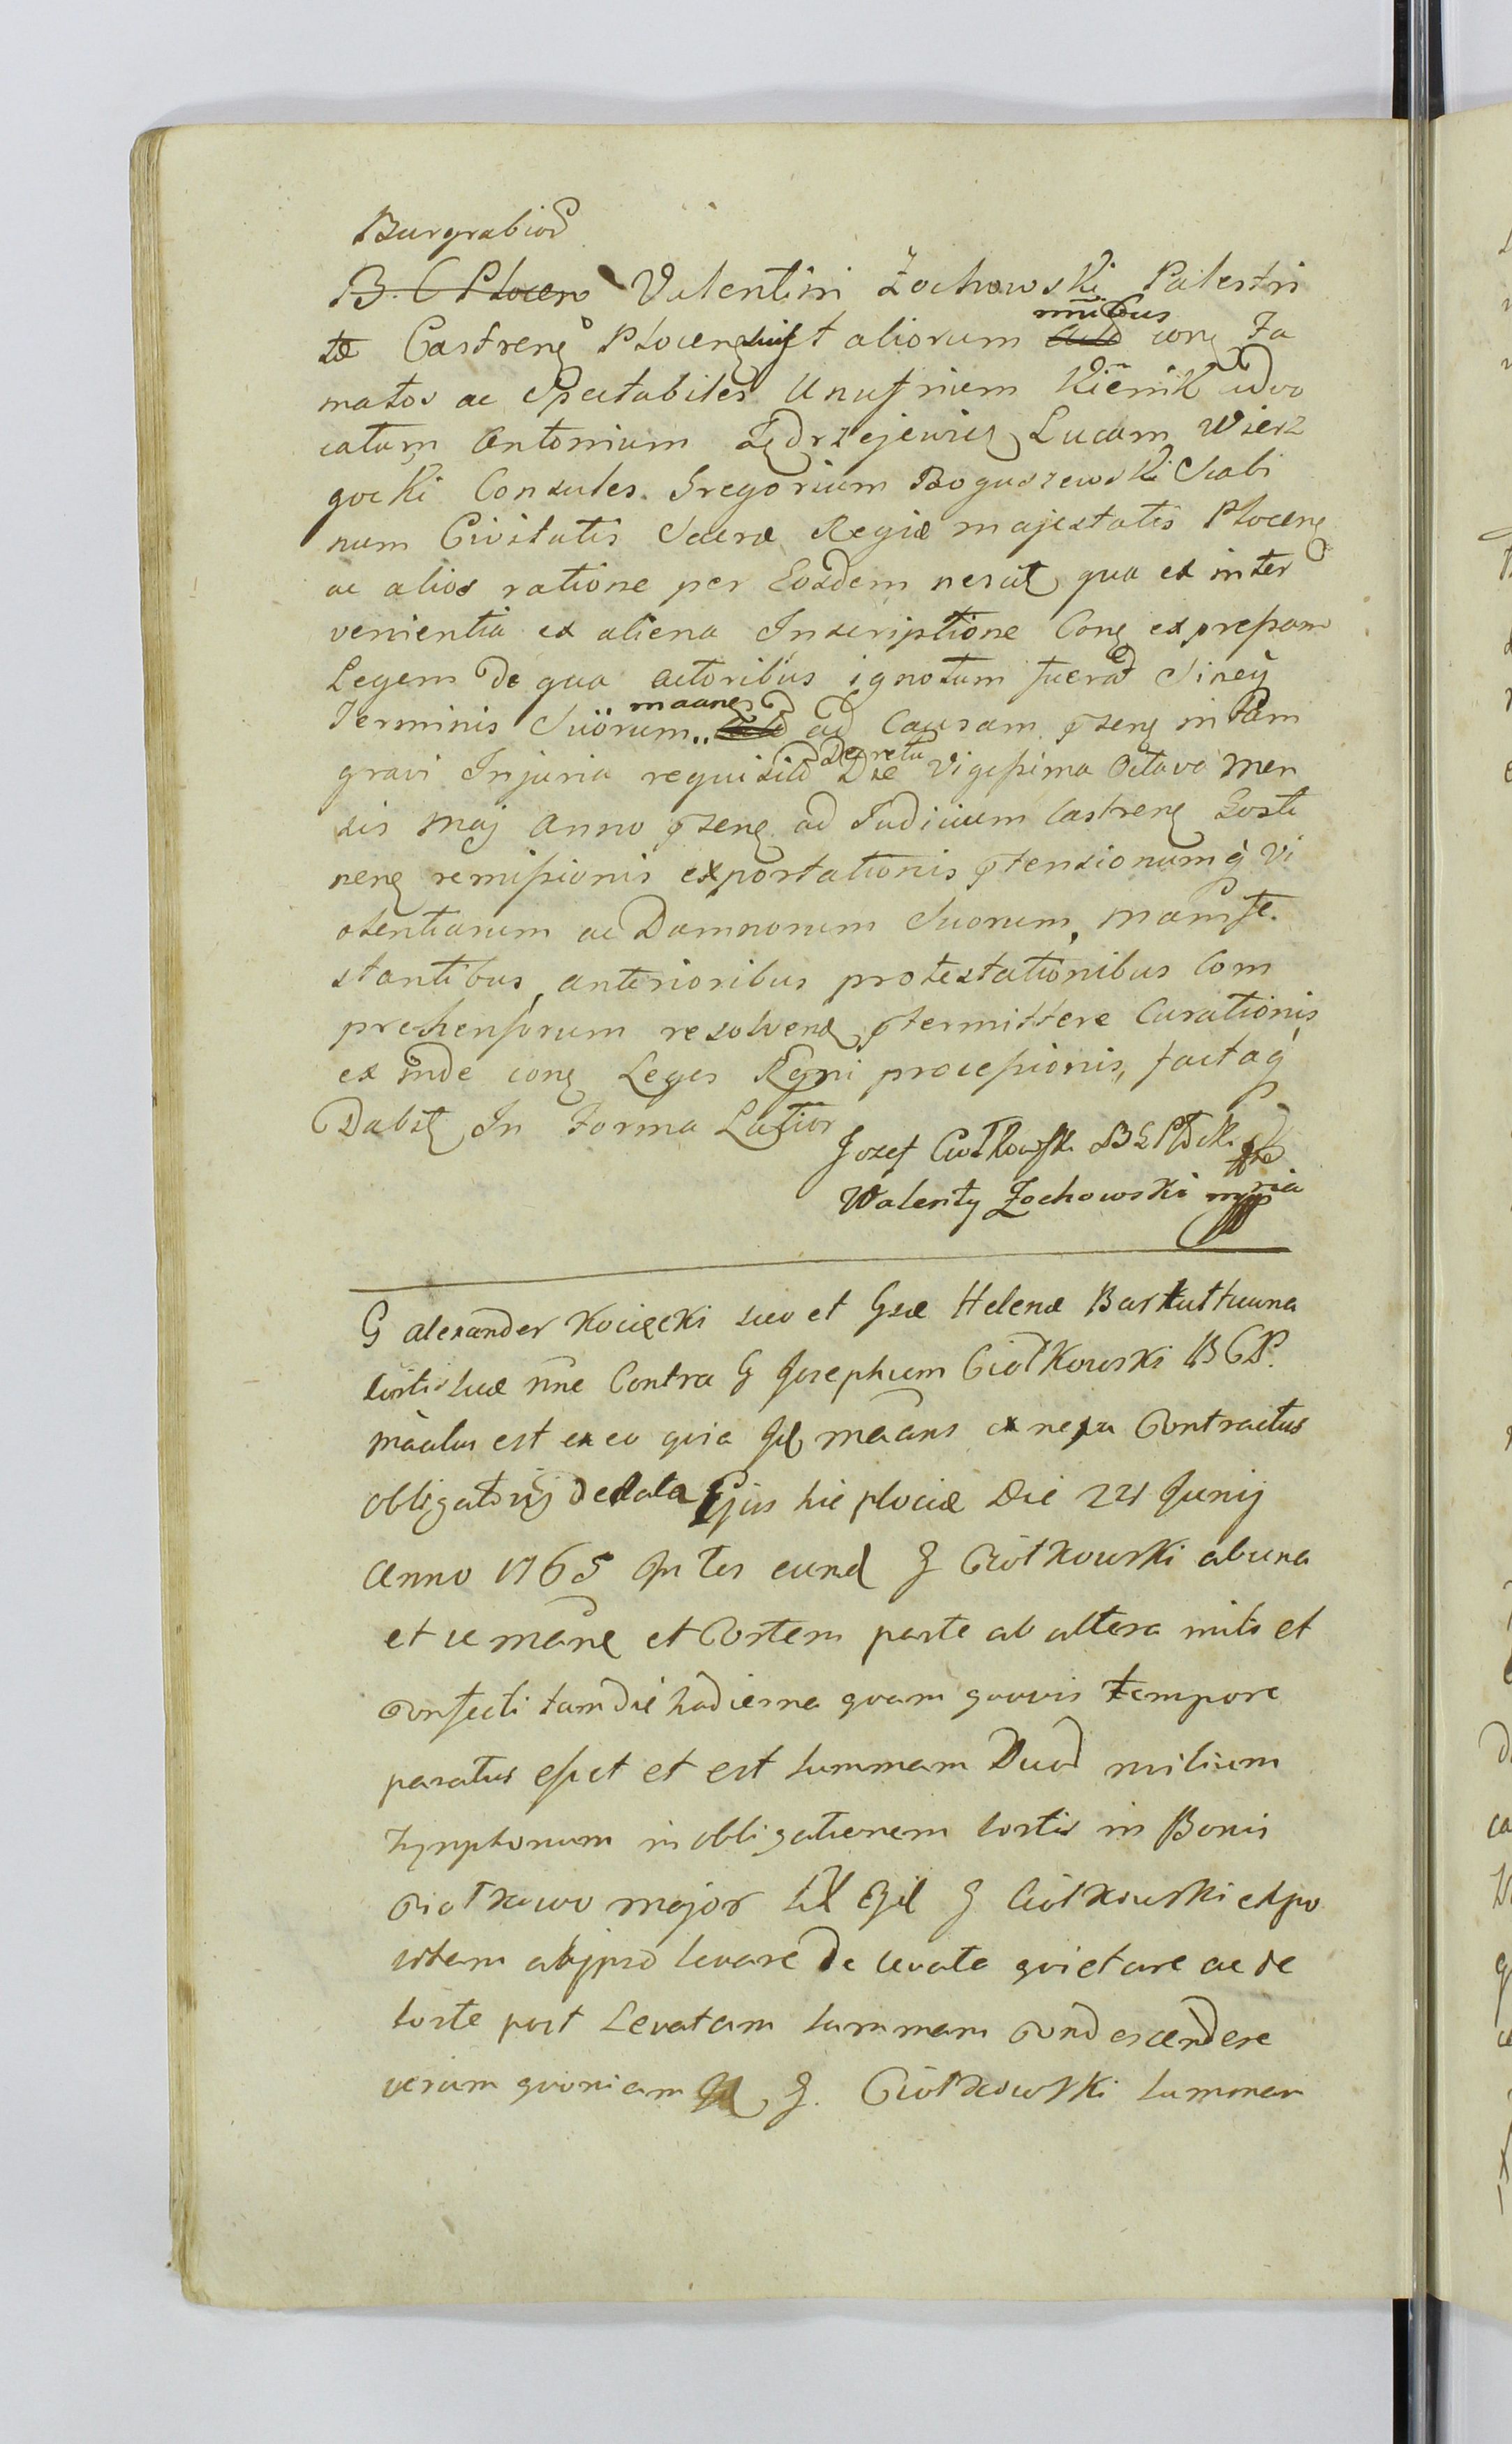 Burgrabior
B. C Plocens Valentini Zochowski Palestri
tæ Castrens Plocens et aliorum nnibus cons Fa
matos ac Spectabiles Unufrium Kiēnik advo
catum Antonium Jędrzejewicz Lucam Wierz
gocki Consules. Gregorium Boguszewski Scabi
num Civitatis Sacræ Regiæ majestatis Plocens
ac alios ratione per Eosdem nescit qua ex inter
venientia ex aliena Inscriptione Cons expressam
Legem de qua actoribus ignotum fuerat Sineq
Terminis Suorum maanes ad Causam psens in tam
gravi Injuria requisit Decretu Die Vigessima Octava Men
sis Maj Anno psens ad Judicium Castrens Sosti
nens remissionis exportationis ptensionumq Vi
olentiarum ac Damnorum Suorum, manife.
stantibus, anterioribus protestationibus Com
prehensorum resolvend ptermittere Curationis
ex inde cons Leges Regni processionis, factaq
Dabit In Forma Latior
Jozef Ciołkowski B G Płocki
Walenty Zochowski mppria
G Alexander Kocięcki suo et Gsæ Helenæ
Cortis suæ nne Contra G Josephum Ciołkowski BGP.
māatus est ex eo quia Ipse māans ex nexu Contractus
obligatorij de data Ejus hic plociæ Die 24 Junij
Anno 1765 Inter eund G Ciołkowski ab una
et se māne et Consortem parte ab altera initi et
Confecti tam die hodierna quam quovis tempore
paratus esset et est summam Duor milium
Tynphonum in obligationem sortis in Bonis
Ciołkowo major G Ciołkowski expo
sitam ab ipso levare de levata quietare ac de
sorte post Levatam summam Condescendere
verum quoniam G. Ciołkowski summam